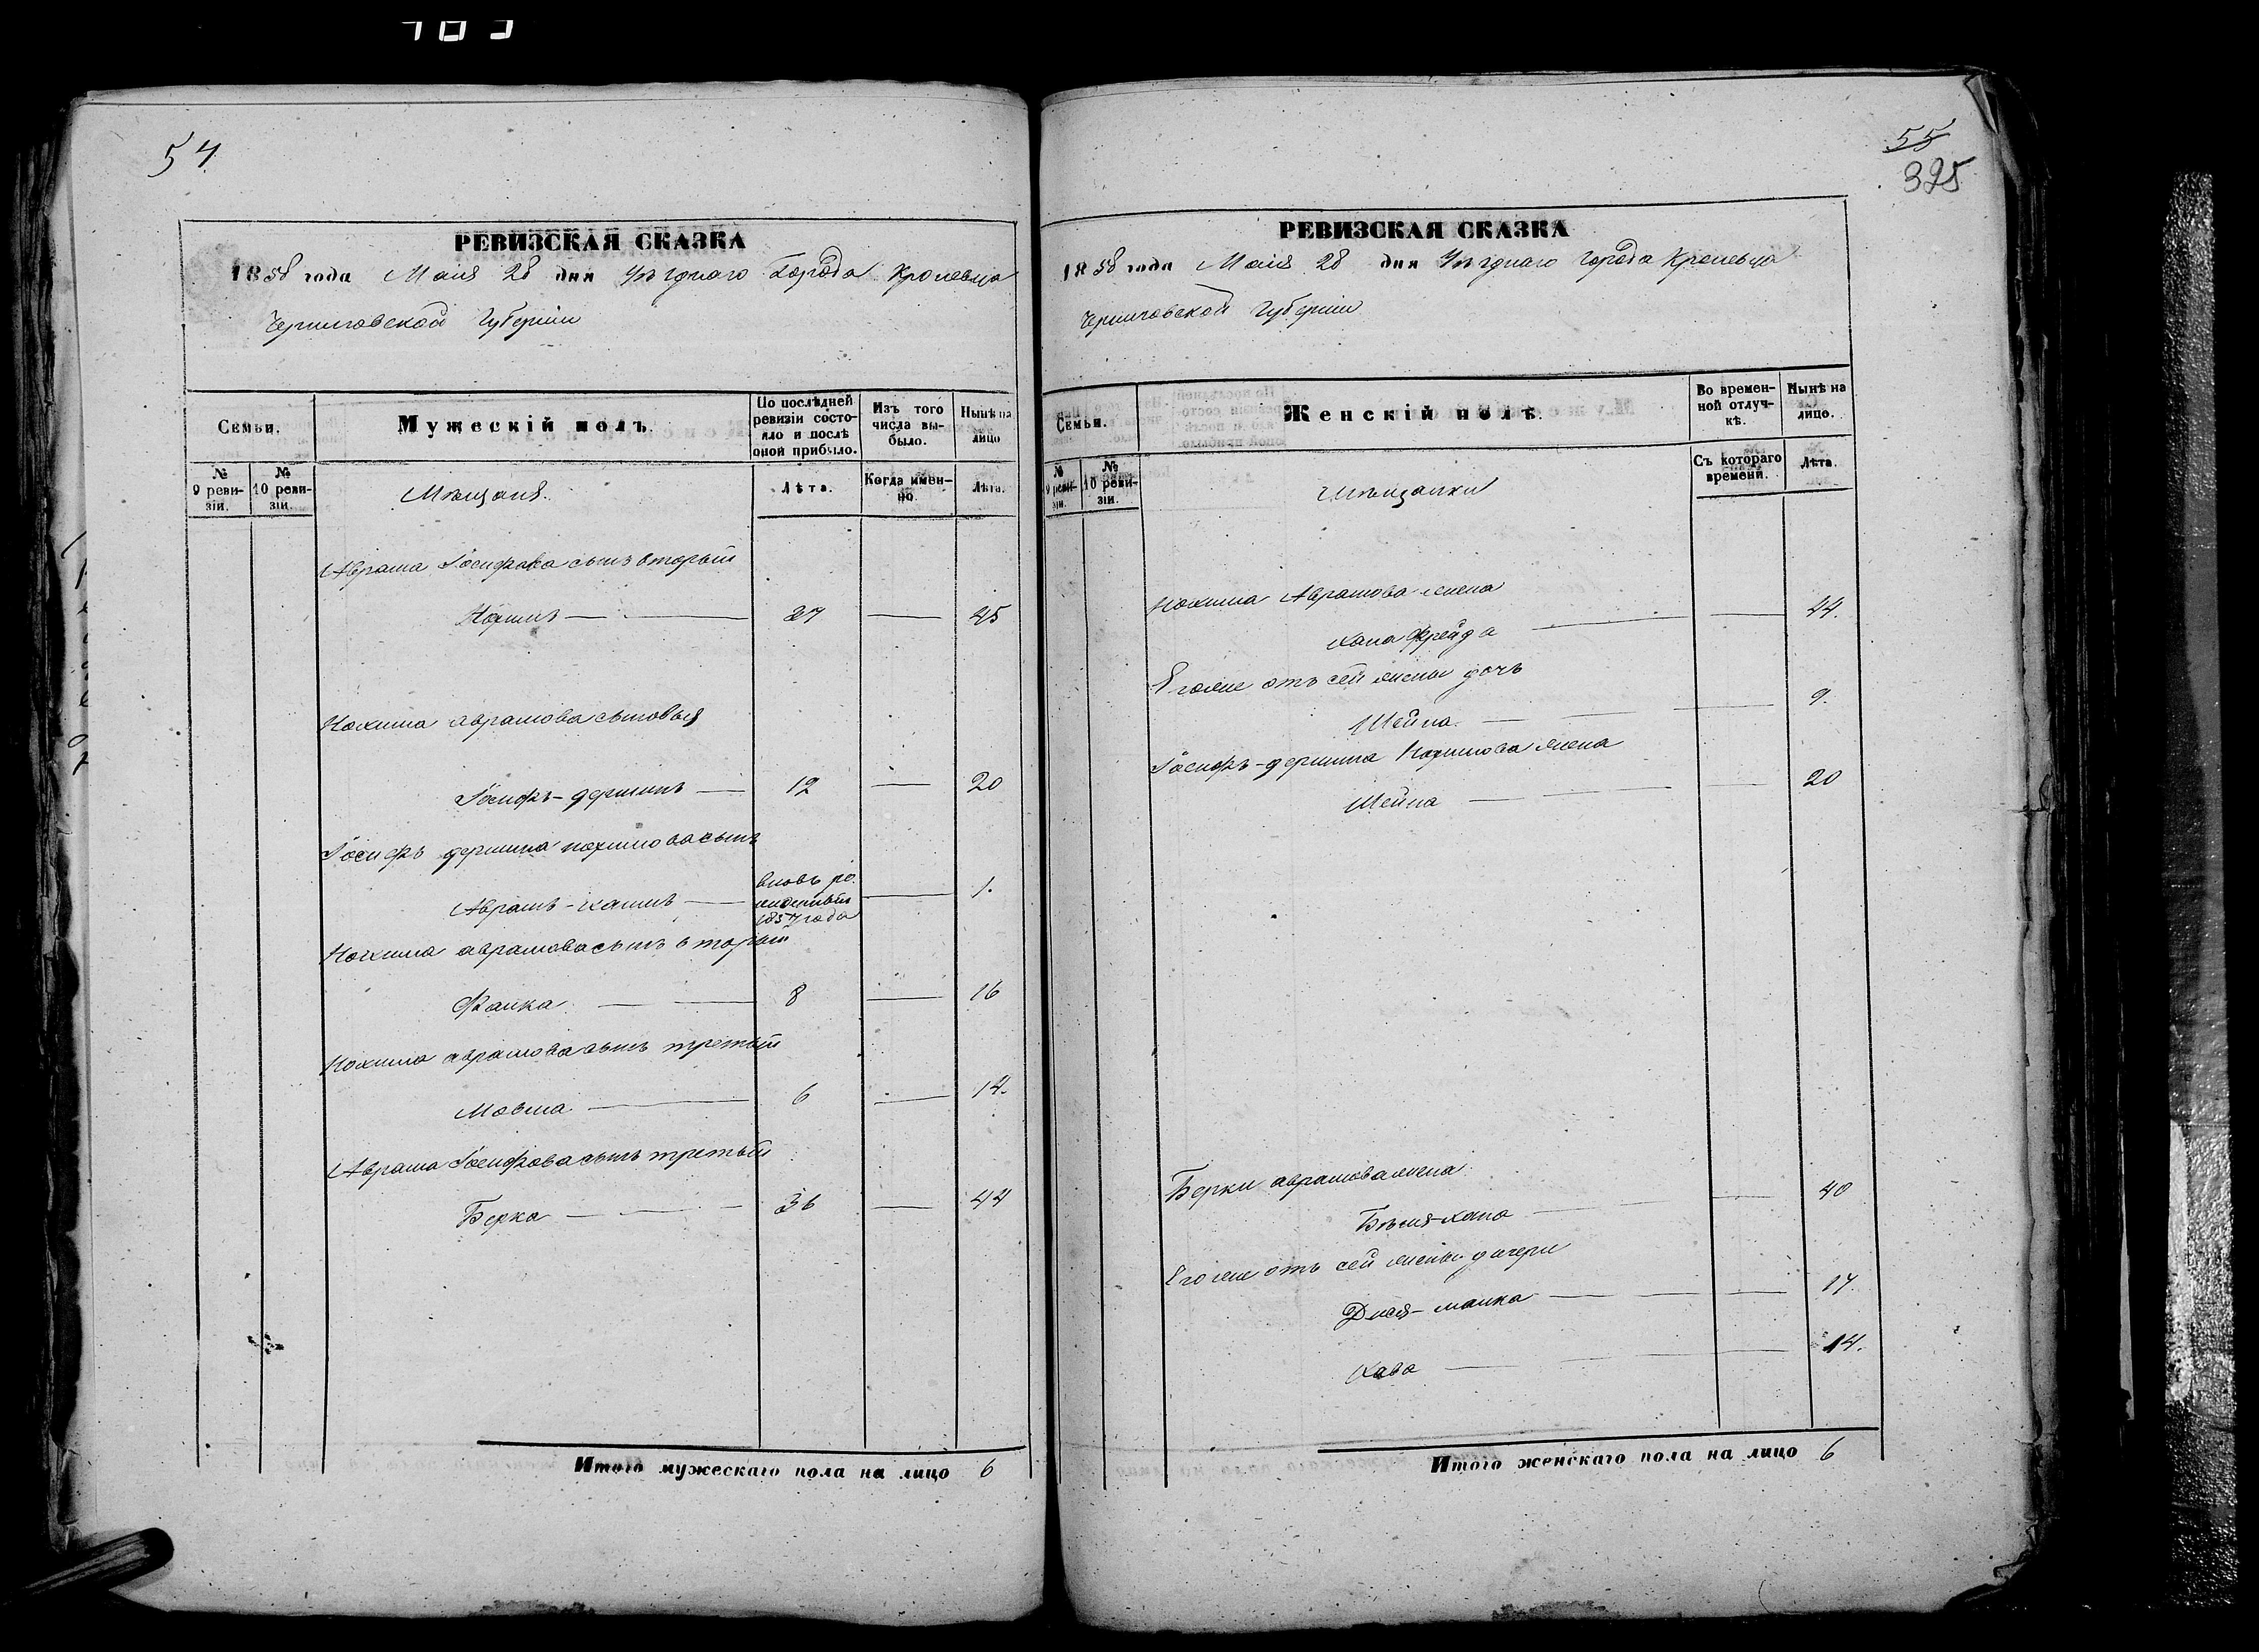 54.
РЕВИЗСКАЯ СКАЗКА
1858 года Маия 28 дня Уѣзднаго Города Кролевца
Черниговской Губерніи
Семьи.
Мужескій полъ.
По послѣдней ревизіи состояло и послѣ оной прибыло.
Изъ того числа выбыло.
Нынѣ на лицо
№ 9 ревизіи.
№ 10 ревизіи.
Мѣщане.
Лѣта.
Когда именно.
Лѣта.
Аврама Іосифова сынъ вторый
Нохимъ — 37 — 45
Нохима аврамова сыновья
Іосифъ-гершинъ — 12 — 20
Іосифъ гершина нохимова сынъ
Аврамъ-хаимъ — вновь рожденный 1857 года — 1.
Нохима аврамова сынъ вторый
Фалка — 8 — 16
Нохима аврамова сынъ третый
Мовша — 6 — 14.
Аврама Іосифова сынъ третый
Берка — 36 — 44
Итого мужескаго пола на лицо 6
55
395
РЕВИЗСКАЯ СКАЗКА
1858 года Маия 28 дня Уѣзднаго города Кролевца
Черниговской Губерніи
Семьи.
Женскій полъ.
Во временной отлучкѣ.
Нынѣ на лицо.
№ 9 ревизіи.
№ 10 ревизіи.
Мѣщанки
Съ котораго времени.
Лѣта.
Нохима Аврамова жена
Хана Фрейда — 44.
Его же отъ сей жены дочь
Шейна. — 9.
Іосифъ-гершина Нохимова жена
Шейна — 20
Берки аврамова жена
Хана — 40
Его же отъ сей жены дочери
Двося-малка — 17.
Хава — 14.
Итого женскаго пола на лицо 6